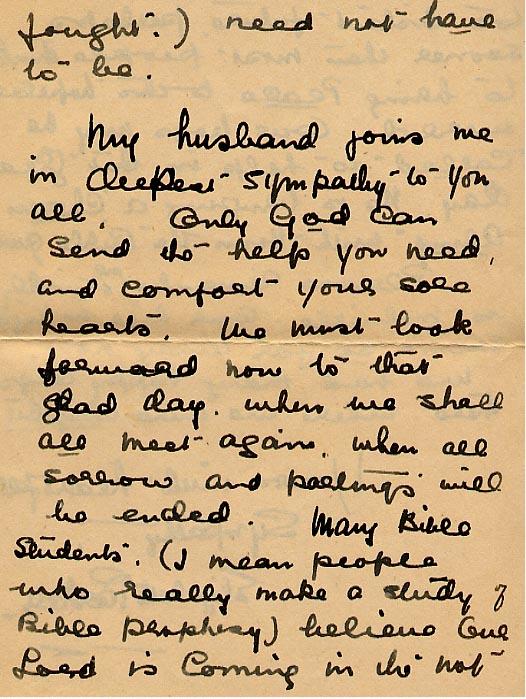 fought?) need not have
to be.
My husband joins me
in deepest sympathy to you
all. Only God can
send the help you need,
and comfort your sore
hearts. We must look
forward now to that
glad day. when we shall
all meet again, when all
sorrow and partings will
be ended. Many Bible
Students. (I mean people
who really make a study of
Bible prophesy) believe Our
Lord is Coming in the not